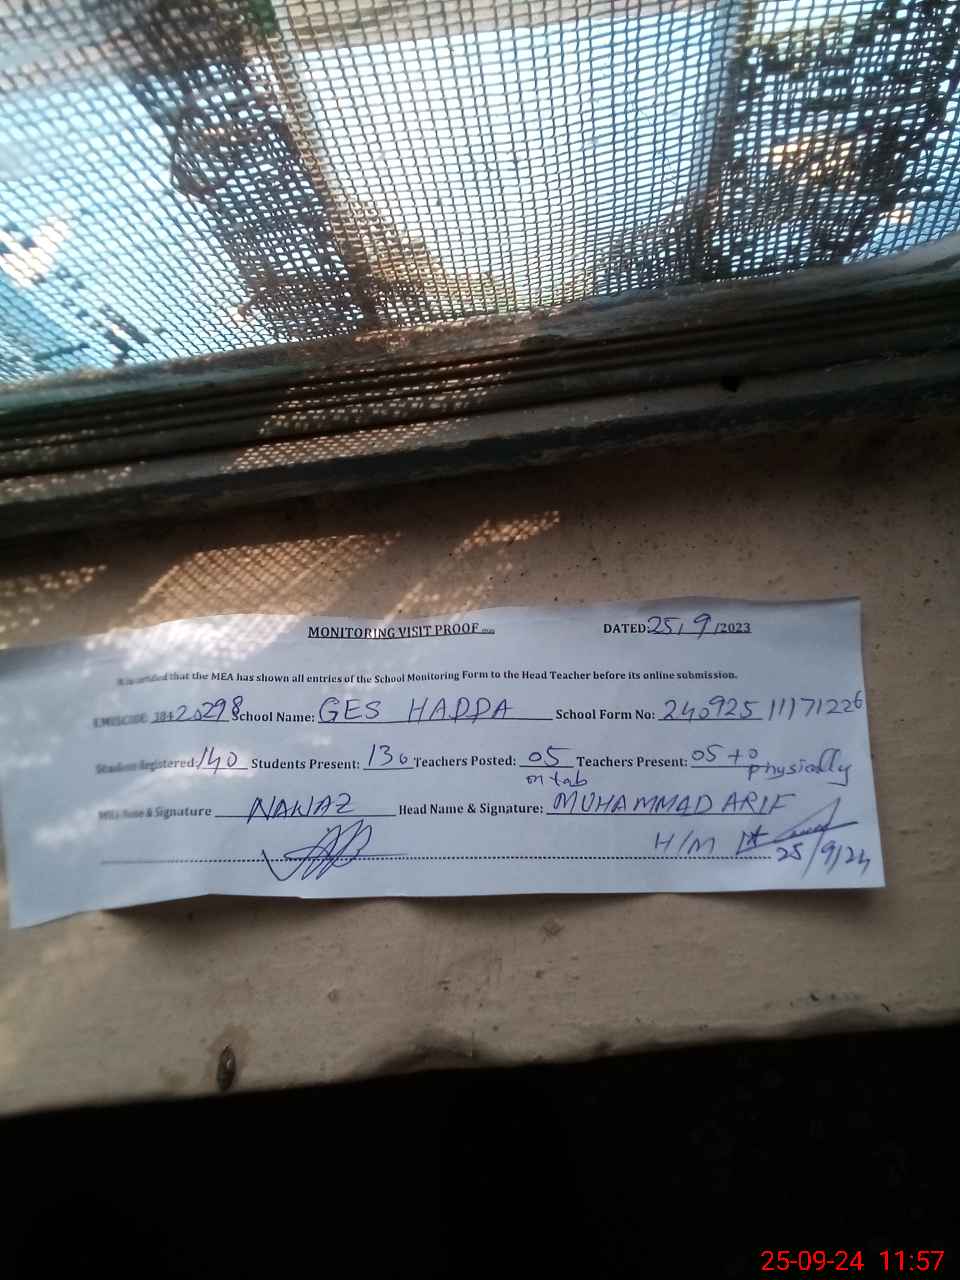 MONITORING VISIT PROOF DATED: 25/9/2023
It is certified that the MEA has shown all entries of the School Monitoring Form to the Head Teacher before its online submission.
EMISCODE 20298 School Name: GES HAPPA School Form No: 240925 11171226
Student Registered: 140 Students Present: 130 Teachers Posted: 05 on tab Teachers Present: 05 to physically
MEA Name & Signature NAWAZ Head Name & Signature: MUHAMMAD ARIF
H/M 25/9/24
25-09-24 11:57